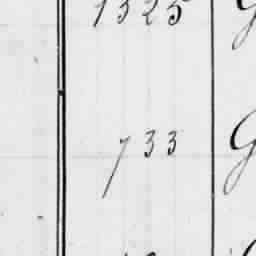 1325
733